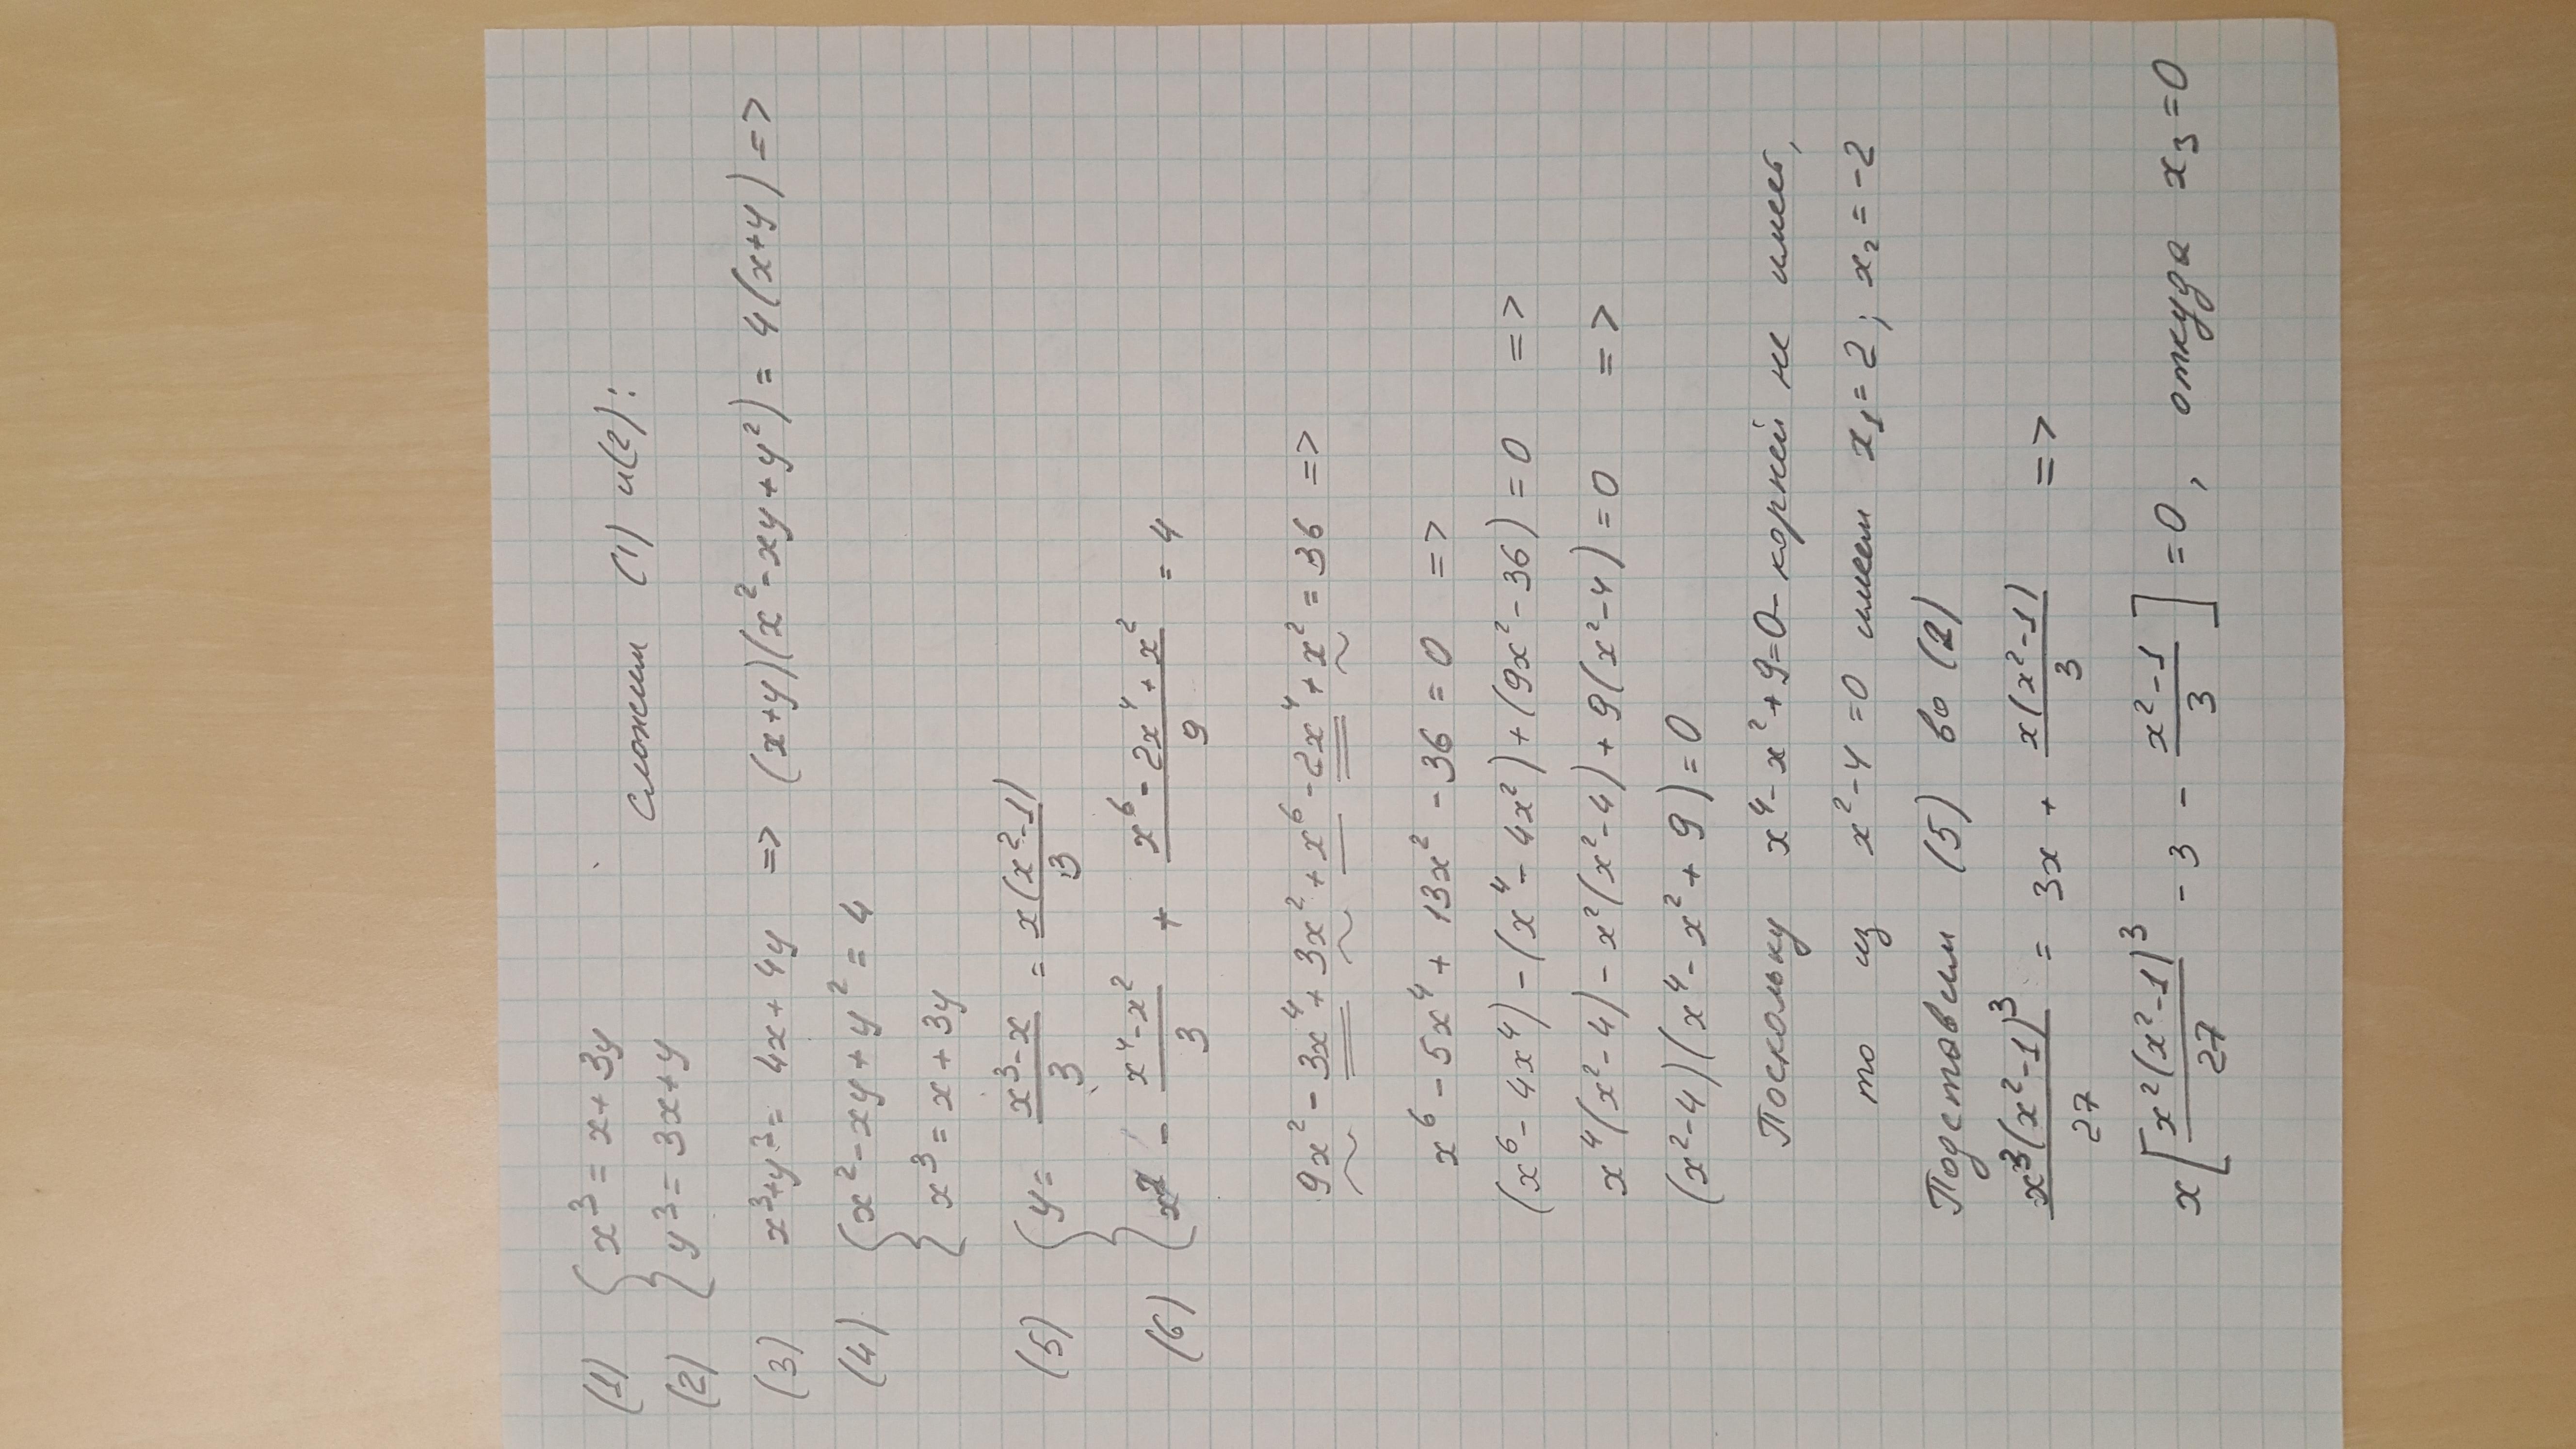 (1) { x³ = x + 3y
Сложим (1) и (2):
(2) { y³ = 3x + y
(3) x³+y³ = 4x + 4y => (x+y)(x² - xy + y²) = 4(x+y) =>
(4) { x² - xy + y² = 4
{ x³ = x + 3y
(5) { y = (x³ - x)/3 = x(x² - 1)/3
(6) { x² - (x⁴ - x²)/3 + (x⁶ - 2x⁴ + x²)/9 = 4
9x² - 3x⁴ + 3x² + x⁶ - 2x⁴ + x² = 36 =>
x⁶ - 5x⁴ + 13x² - 36 = 0 =>
(x⁶ - 4x⁴) - (x⁴ - 4x²) + (9x² - 36) = 0 =>
x⁴(x² - 4) - x²(x² - 4) + 9(x² - 4) = 0 =>
(x² - 4)(x⁴ - x² + 9) = 0
Поскольку x⁴ - x² + 9 = 0 - корней не имеет,
то из x² - 4 = 0 имеем x₁ = 2; x₂ = -2
Подставим (5) во (2)
x³(x² - 1)³/27 = 3x + x(x² - 1)/3 =>
x[x²(x² - 1)³/27 - 3 - (x² - 1)/3] = 0, откуда x₃ = 0